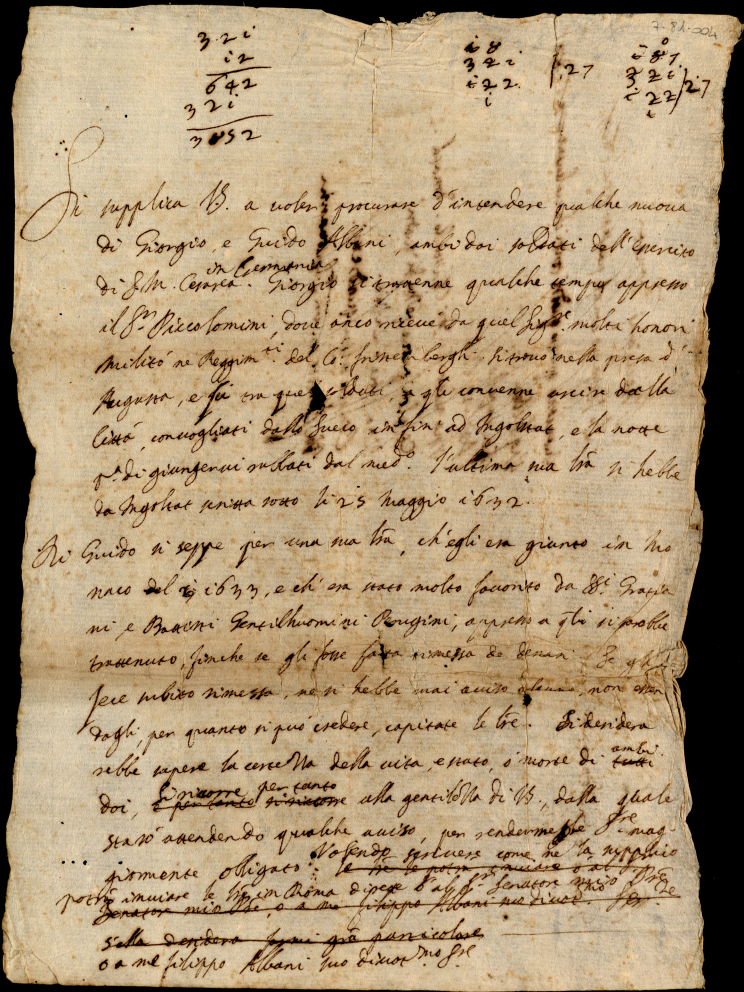 7-81-004
321
i2
642
321
3852
i8
32i
i22
i
27
0
i87
32i
i22
i
27
Si supplica V.S. a voler procurare d'intendere qualche nuova
di Giorgio, e Guido Albani, ambi doi soldati dell'esercito
in Germania
di S. M. Cesarea. Giorgio si trattenne qualche tempo appresso
il Sr. Piccolomini, dove anco riceve da quel Sigre. molti honori
militò ne Reggimti. del Co. si trovò nella presa d'
Augusta, e fù tra quei soldati, a gli convenne uscir dalla
Città, convogliati dallo Sveco in fin ad Ingolstat, e la notte
pa. di giungervi rubbati dal medo. l'ultima sua lra si hebbe
da Ingolstat scritta sotto li 25 Maggio i632.
Di Guido si seppe per una sua lra, ch'egli era giunto in Mo
naco del i633, e ch'era stato molto favorito da SSi. Gratia
ni, e Battisti Gentilhuomini Perugini, appresso a qli si sarebbe
trattenuto, finche se gli fosse fatta rimessa de denari. Se gli
fece subito rimessa, ne si hebbe mai aviso alcuno, non essen
dogli, per quanto si può credere, capitate le lre. Si desidera
rebbe sapere la certezza della vita, e stato, ò morte di tutti
ambi
doi, e per tanto si ricorre alla gentilezza di V.S., dalla quale
si ricorre per tanto
starò attendendo qualche aviso, per rendermele Sre. mag
giormente obligato. Volendo scrivere come ne la supplico
le lre le potrà inviare ò al Sr.
potrà inviare le lre in Roma
Senatore mio Pre, o a me Filippo Albani suo divot. Ser.
S'ella desidera
o a me Filippo Albani suo divotmo. Sre